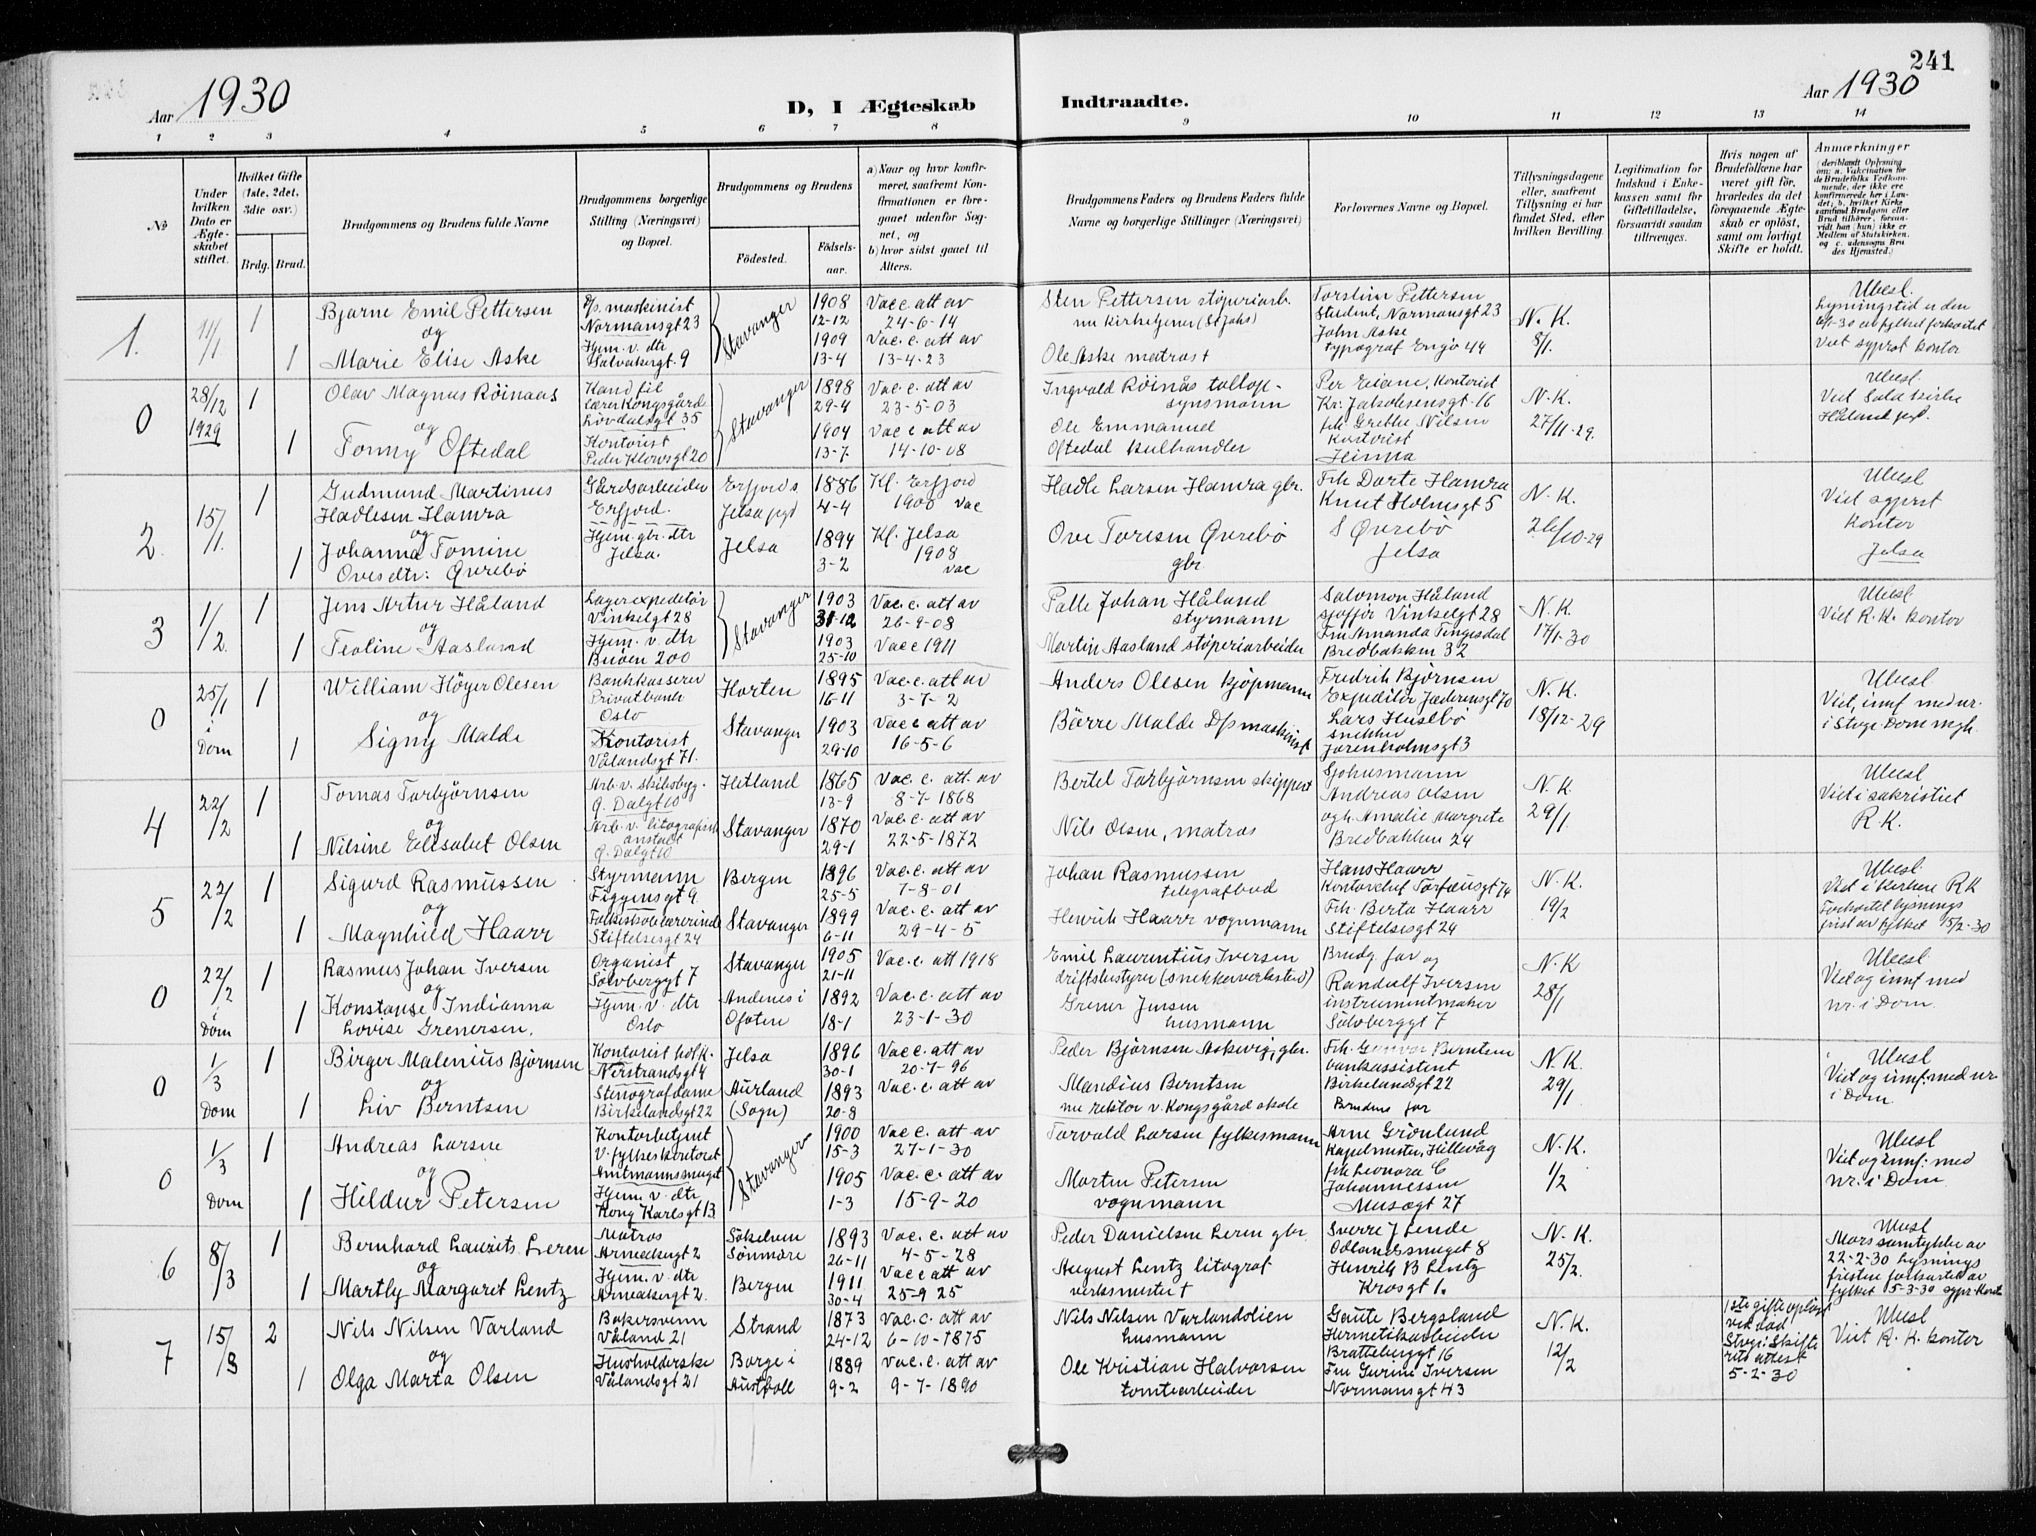 241
Aar 1930
D, I Ægteskab
Indtraadte.
Aar 1930
1 2 3 4 5 6 7 8 9 10 11 12 13 14
No
Under hvilken Dato er Ægteskabet stiftet.
Hvilket Gifte (1ste, 2det, 3die osv.)
Brdg. Brud.
Brudgommens og Brudens fulde Navne
Brudgommens borgerlige Stilling (Næringsvei) og Bopæl.
Brudgommens og Brudens
Födested.
Födselsaar.
a) Naar og hvor konfirmeret, saafremt Konfirmationen er foregaaet udenfor Sognet, og
b) hvor sidst gaaet til Alters.
Brudgommens Faders og Brudens Faders fulde Navne og borgerlige Stillinger (Næringsvei)
Forlovernes Navne og Bopæl.
Tillysningsdagene eller, saafremt Tillysning ei har fundet Sted, efter hvilken Bevilling.
Legitimation for Indskud i Enkekassen samt for Giftetilladelse, forsaavidt saadan tiltrænges.
Hvis nogen af Brudefolkene har været gift för, hvorledes da det foregaaende Ægteskab er oplöst, samt om lovligt Skifte er holdt.
Anmærkninger
(deriblandt Oplysning om: a. Vakcination for de Brudefolks Vedkommende, der ikke ere konfirmerede her i Landet; b. hvilket Kirkesamfund Brudgom eller Brud tilhörer, forsaavidt han (hun) ikke er Medlem af Statskirken, og c. udensogns Brudes Hjemsted.)
1. 11/1 1
Bjarne Emil Pettersen
og
1 Marie Elise Aske
D/s. maskinist
Normansgt 23
Hjem. v. dtr
Stavanger
1908
12-12
1909
13-4
Vac c. att av
24-6-14
Vac. c. att av
13-4-23
Sten Pettersen støperiarb.
nu kirketjener (St Johs)
Ole Aske matros
Torstein Pettersen
Student, Normansgt 23
John Aske
typograf Engø 44
N. K.
8/1.
Ubesl.
Lysningstid er den
av fylket forkortet
Viet sgprst kontor
0 28/12 1929 1
Olav Magnus Röinaas
og
1 Tonny Oftedal
Kand fil
Lærer Kongsgård
Lövdalsgt 35
Kontorist
Peder Klowsgt 20
Stavanger
1898
29-4
1904
13-7
Vac. c. att av
23-5-03
Vac c att av
14-10-08
Ingvald Röinås tollopsynsmann
Ole Emmanuel
Oftedal kulhandler
Per Eiane, Kontorist
Kr. Jakobsensgt. 16
frk Grethe Nilsen
Kontorist
Hinna
N. K.
27/11-29.
Ubesl.
Viet Sola kirke
Håland pgd.
2. 15/1. 1
Gudmund Martinus
Hadlesen Hamra
og
1 Johanna Tomine
Ovesdtr: Qvrebö
Gårdsarbeider
Erfjord.
Hjem. gbr. dtr
Jelsa.
Erfjords
Jelsa pgd
Jelsa
1886
4-4
1894
3-2
Kf. Erfjord
1900 vac
Kf. Jelsa
1908
vac
Hadle Larsen Hamra gbr.
Ove Toresen Qvrebö
gbr.
Frk Dorte Hamra
Knut Holmsgt 5
S Qvrebö
Jelsa
N. K.
26/10-29
Ubesl
Viet sgprst
kontor
Jelsa
3 1/2. 1
Jens Artur Håland
og
1 Teoline Aasland
Lagerexpeditör
Vinkelgt 28
Hjem. v. dtr
Buöen 200
Stavanger
1903
31-12
1903
25-10
Vac. c. att av
26-9-08
Vac c 1911
Palle Johan Håland
styrmann
Martin Aasland støperiarbeider
Salomon Håland
sjofför Vinkelgt 28
Fru Amanda Tengesdal
Bredbakken 32
N. K.
17/1-30
Ubesl
Viet R. K. kontor
0 25/1 i Dom 1
William Höyer Olesen
og
1 Signy Malde
Bankkasserer
Privatbank
Oslo
Kontorist
Vålandsgt 71.
Horten
Stavanger
1895
16-11
1903
29-10
Vac. c. att av
3-7-2
Vac c att av
16-5-6
Anders Olesen kjöpmann
Börre Malde D/s maskinist
Fredrik Björnsen
Expeditör Jæderensgt 70
Lars Husebö
snekker
Jorenholmsgt 3
N. K.
18/12-29
Ubesl
Viet, innf med nr.
i Stvgr Dom mgh.
4 22/2 1
Tomas Torbjörnsen
og
1 Nilsine Elisabet Olsen
Arb. v. skibsbyg.
Q. Dalgt 10
Arb. v. litografisk
anstalt
Q. Dalgt 10
Hetland
Stavanger
1865
13-9
1870
29-1
Vac. c. att. av
8-7-1868
Vac. c. att av
22-5-1872
Bertel Torbjörnsen skipper
Nils Olsen, matros
Sjøhusmann
Andreas Olsen
og h. Amalie Margrete
Bredbakken 24
N. K.
29/1.
Ubesl
Viet i sakristiet
R. K.
5 22/2 1
Sigurd Rasmussen
og
1 Magnhild Haarr
Styrmann
Figgensgt 9.
Folkeskolelærerinde
Stiftelsesgt 24
Bergen
Stavanger
1896
25-5
1899
6-11
Vac. c. att av
7-8-01
Vac. c. att av
29-4-5
Johan Rasmussen
telegrafbud
Henrik Haarr vognmann
Hans Haarr
Kontorchef Torfæusgt 74
Frk. Berta Haarr
Stiftelsesgt 24
N. K.
19/2
Ubesl.
Viet i kirken R K
Forkortet lysnings
frist av fylket 15/2-30
0 22/2 i Dom 1
Rasmus Johan Iversen
og
1 Konstanse Indianna
Lovise Grenersen.
Organist
Sölvberggt 7
Hjem. v. dtr
Oslo
Stavanger
Andenes i
Ofoten
1905
21-11
1892
18-1
Vac. c. att 1918
Vac. c. att av
23-1-30
Emil Laurentius Iversen
driftsbestyrer (snekkerverksted)
Grener Jensen
husmann
Brudg. far og
Randulf Iversen
instrumentmaker
Sölvberggt 7
N. K
28/1
Ubesl
Viet og innf med
nr. i Dom.
0 1/3 Dom 1
Birger Malenius Björnsen
og
1 Liv Berntsen
Kontorist
Nerstrandsgt 4
Stenografdame
Birkelandsgt 22
Jelsa
Aurland
(Sogn)
1896
30-1
1893
20-8
Vac c. att av
20-7-96
Vac. c. att av
Peder Björnsen Askvig, gbr.
Mandius Berntsen
nu rektor v. Kongsgård skole
Frk. Gunvor Berntsen
bankassistent
Birkelandsgt 22
Brudens far
N. K.
29/1
Ubesl
Viet og innf: med nr.
i Dom
0 1/3 Dom 1
Andreas Larsen
og
1 Hildur Petersen
Kontorbetjent
v. fylkeskontoret
Amtmannssmuget
Hjem. v. dtr
Kong Karlsgt 13
Stavanger
1900
15-3
1905
1-3
Vac c. att av
27-1-30
Vac. c. att av
15-9-20
Torvald Larsen fylkesmann
Morten Petersen
vognmann
Arne Grönlund
Kapelmester, Hillevåg
frk Leonora C
Johannessen
Musægt 27
N. K.
1/2
Ubesl
Viet og innf: med
nr. i Dom
6 8/3 1
Bernhard Laurits Leren
og
1 Martly Margaret Lentz
Matros
Armeakergt 2
Hjem. v. dtr
Armeakergt 2.
Sökelven
Sönmöre
Bergen
1893
26-11
1911
30-4
Vac. c. att av
4-5-28
Vac c att av
25-9 25
Peder Danielsen Leren gbr
August Lentz litograf
verksmester
Sverre J Lende
Odlandssmuget 8
Henrik B Lentz
Krosgt 1.
N. K.
25/2.
Ubesl
Mors samtykke av
22-2-30 Lysnings
fristen forkortet av
fylket 5-3-30 sgpr. Kontor
7 15/3 2
Nils Nilsen Varland
og
1 Olga Marta Olsen
Bakersvenn
Våland 21
Husholderske
Vålandsgt 21
Strand
Borge i
Austfoll
1873
24-12
1889
9-2
Vac. c. att av
6-10-1875
Vac. c. att av
9-7-1890
Nils Nilsen Varlandslien
husmann
Ole Kristian Halvorsen
tomtearbeider
Gaute Bergsland
Hermetikarbeider
Bratteberggt 16
Fru Gurine Iversen
Normansgt 43
N. K.
12/2
1ste gifte oplöst
ved död
Stvgr. Skifterets attest
5-2-30
Ubesl
Viet R. K. kontor